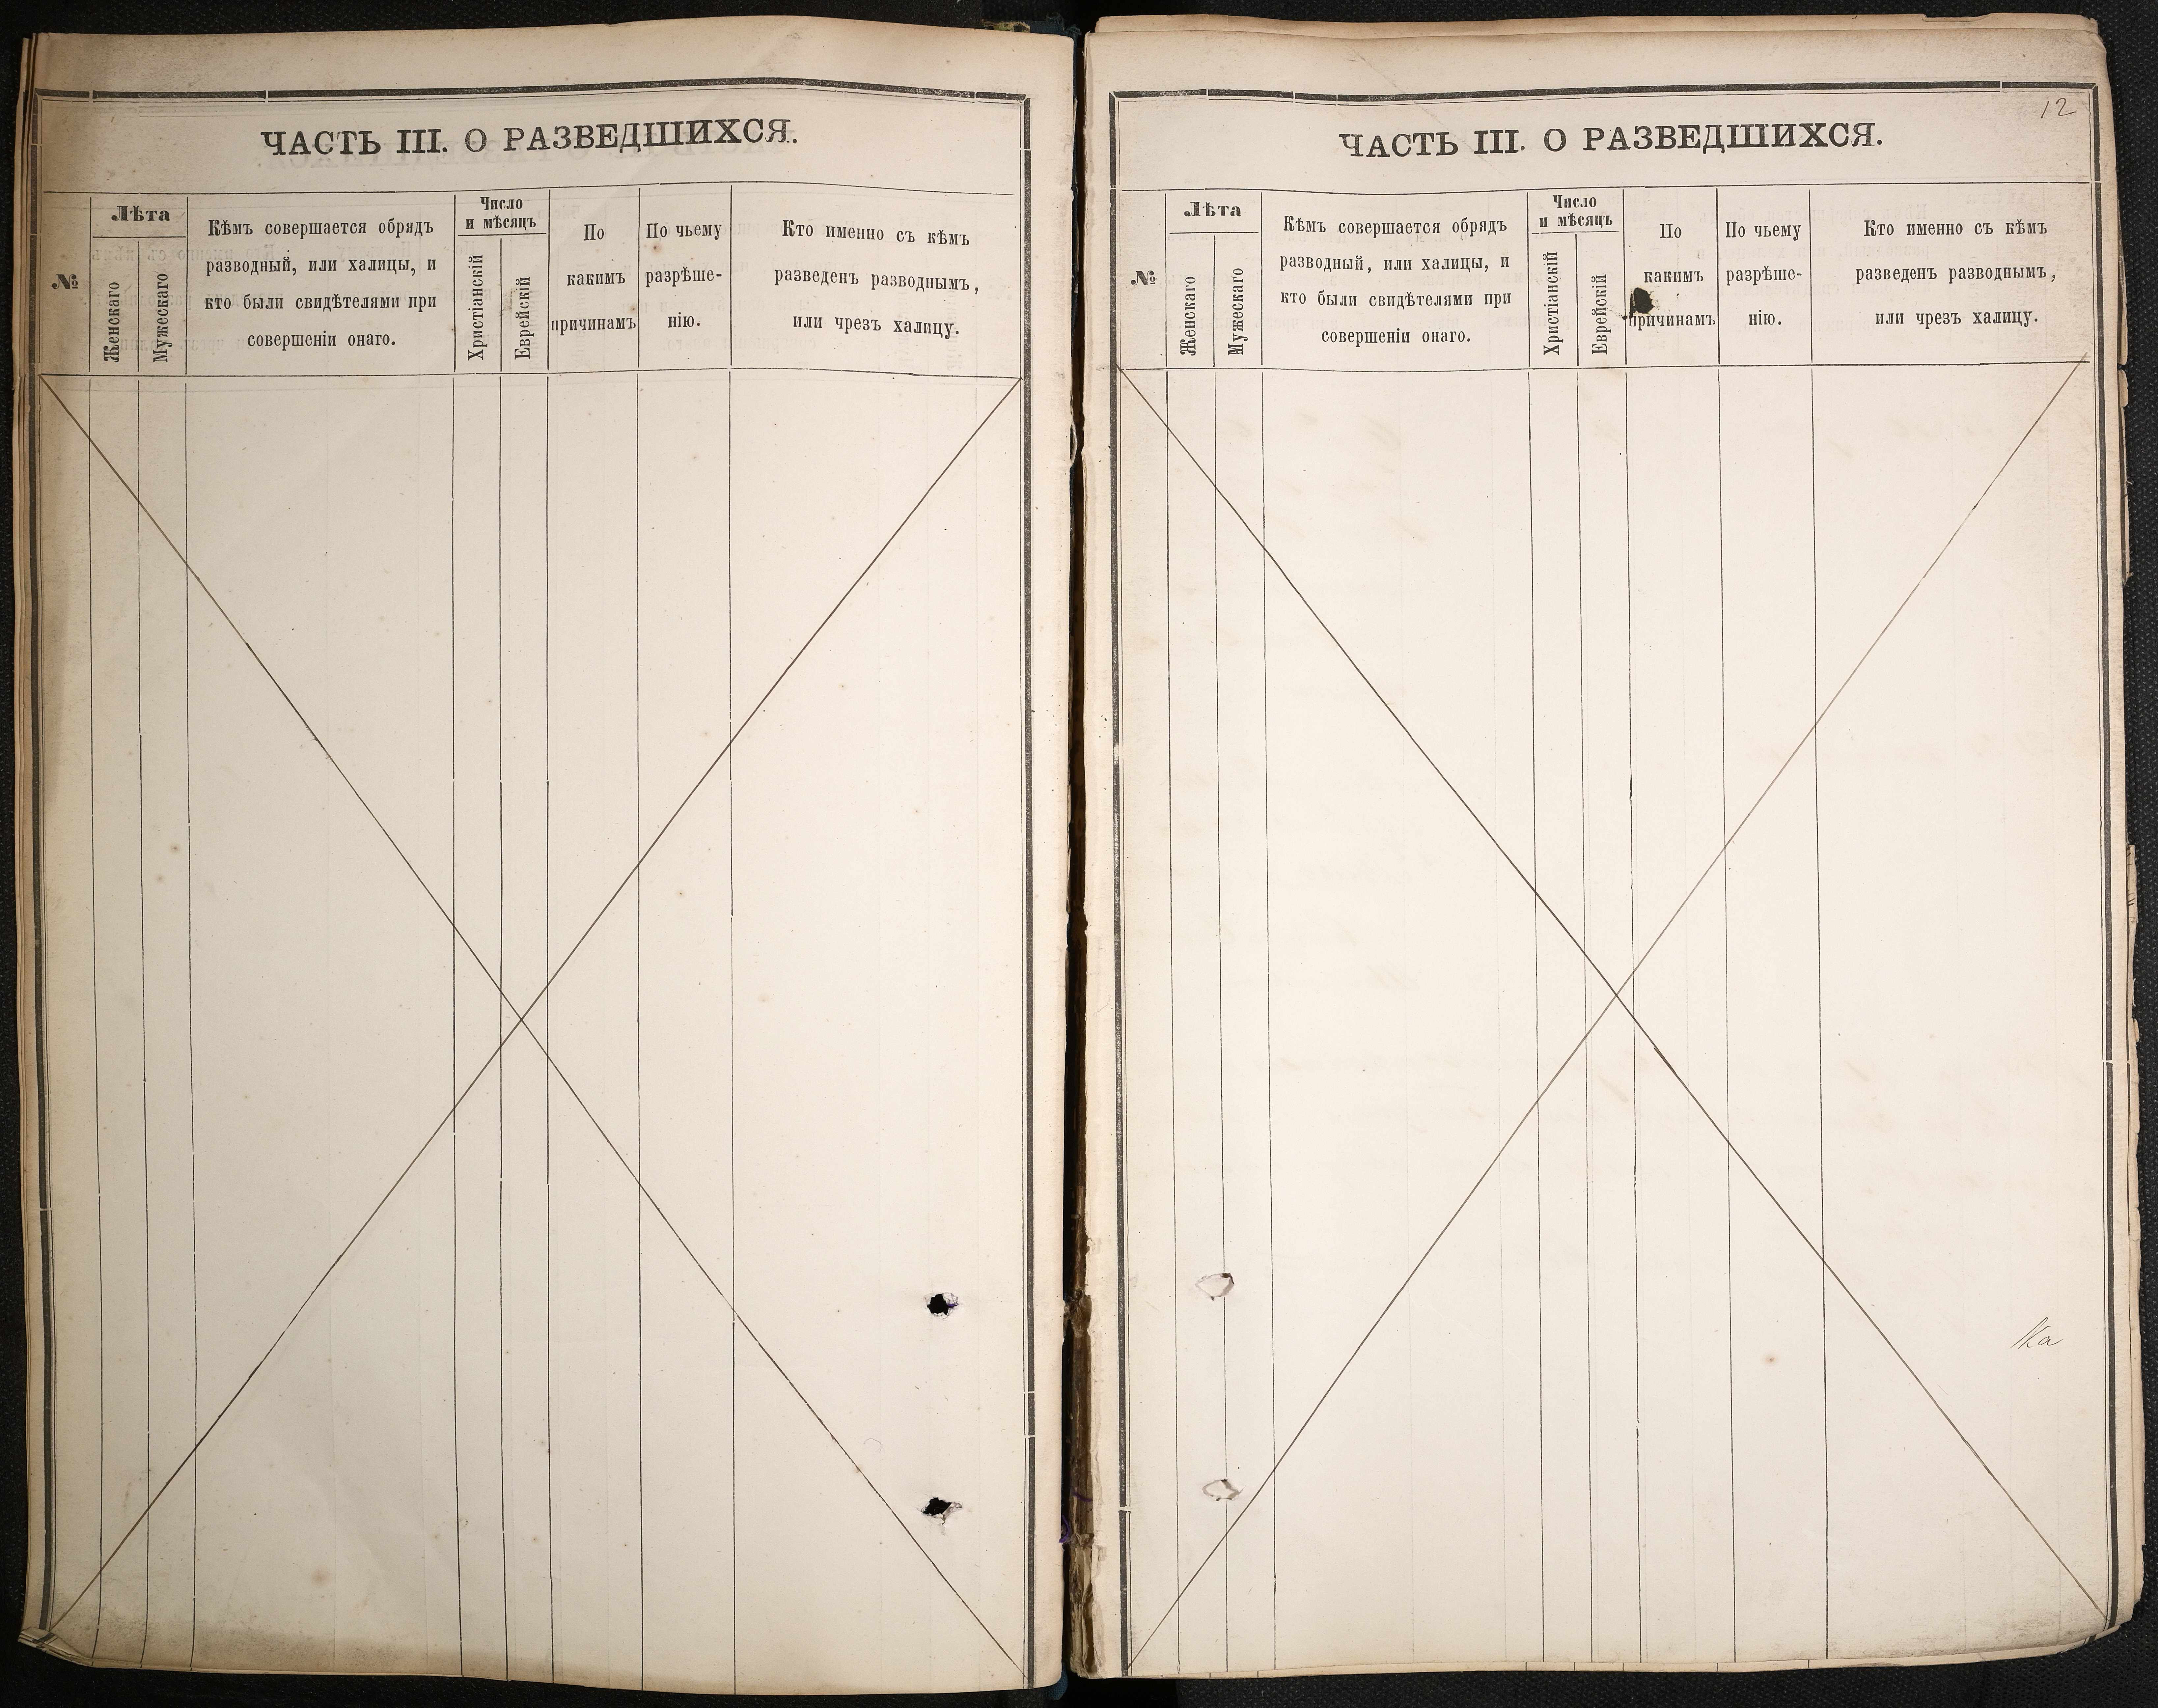 ЧАСТЬ III. О РАЗВЕДШИХСЯ.
№
Лѣта
Женскаго
Мужескаго
Кѣмъ совершается обрядъ
разводный, или халицы, и
кто были свидѣтелями при
совершеніи онаго.
Число
и мѣсяцъ
Христіанскій
Еврейскій
По
какимъ
причинамъ
По чьему
разрѣше-
нію.
Кто именно съ кѣмъ
разведенъ разводнымъ,
или чрезъ халицу.
12
ЧАСТЬ III. О РАЗВЕДШИХСЯ.
№
Лѣта
Женскаго
Мужескаго
Кѣмъ совершается обрядъ
разводный, или халицы, и
кто были свидѣтелями при
совершеніи онаго.
Число
и мѣсяцъ
Христіанскій
Еврейскій
По
какимъ
причинамъ
По чьему
разрѣше-
нію.
Кто именно съ кѣмъ
разведенъ разводнымъ,
или чрезъ халицу.